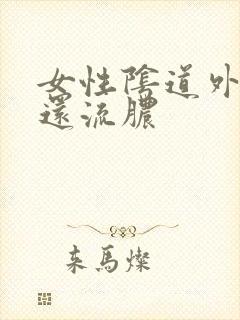 女性陰道外
還流膿
来馬燦